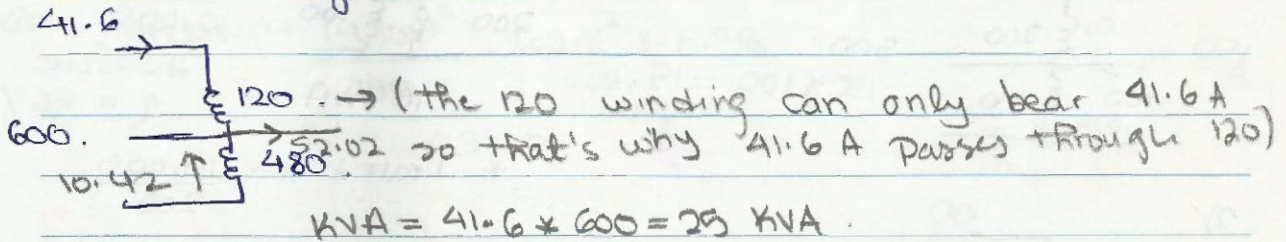 41.6
120 . → (the 120 winding can only bear 41.6 A
600. 52.02 so that's why 41.6 A passes through 120)
10.42 ↑ 480.
KVA = 41.6 * 600 = 25 KVA.